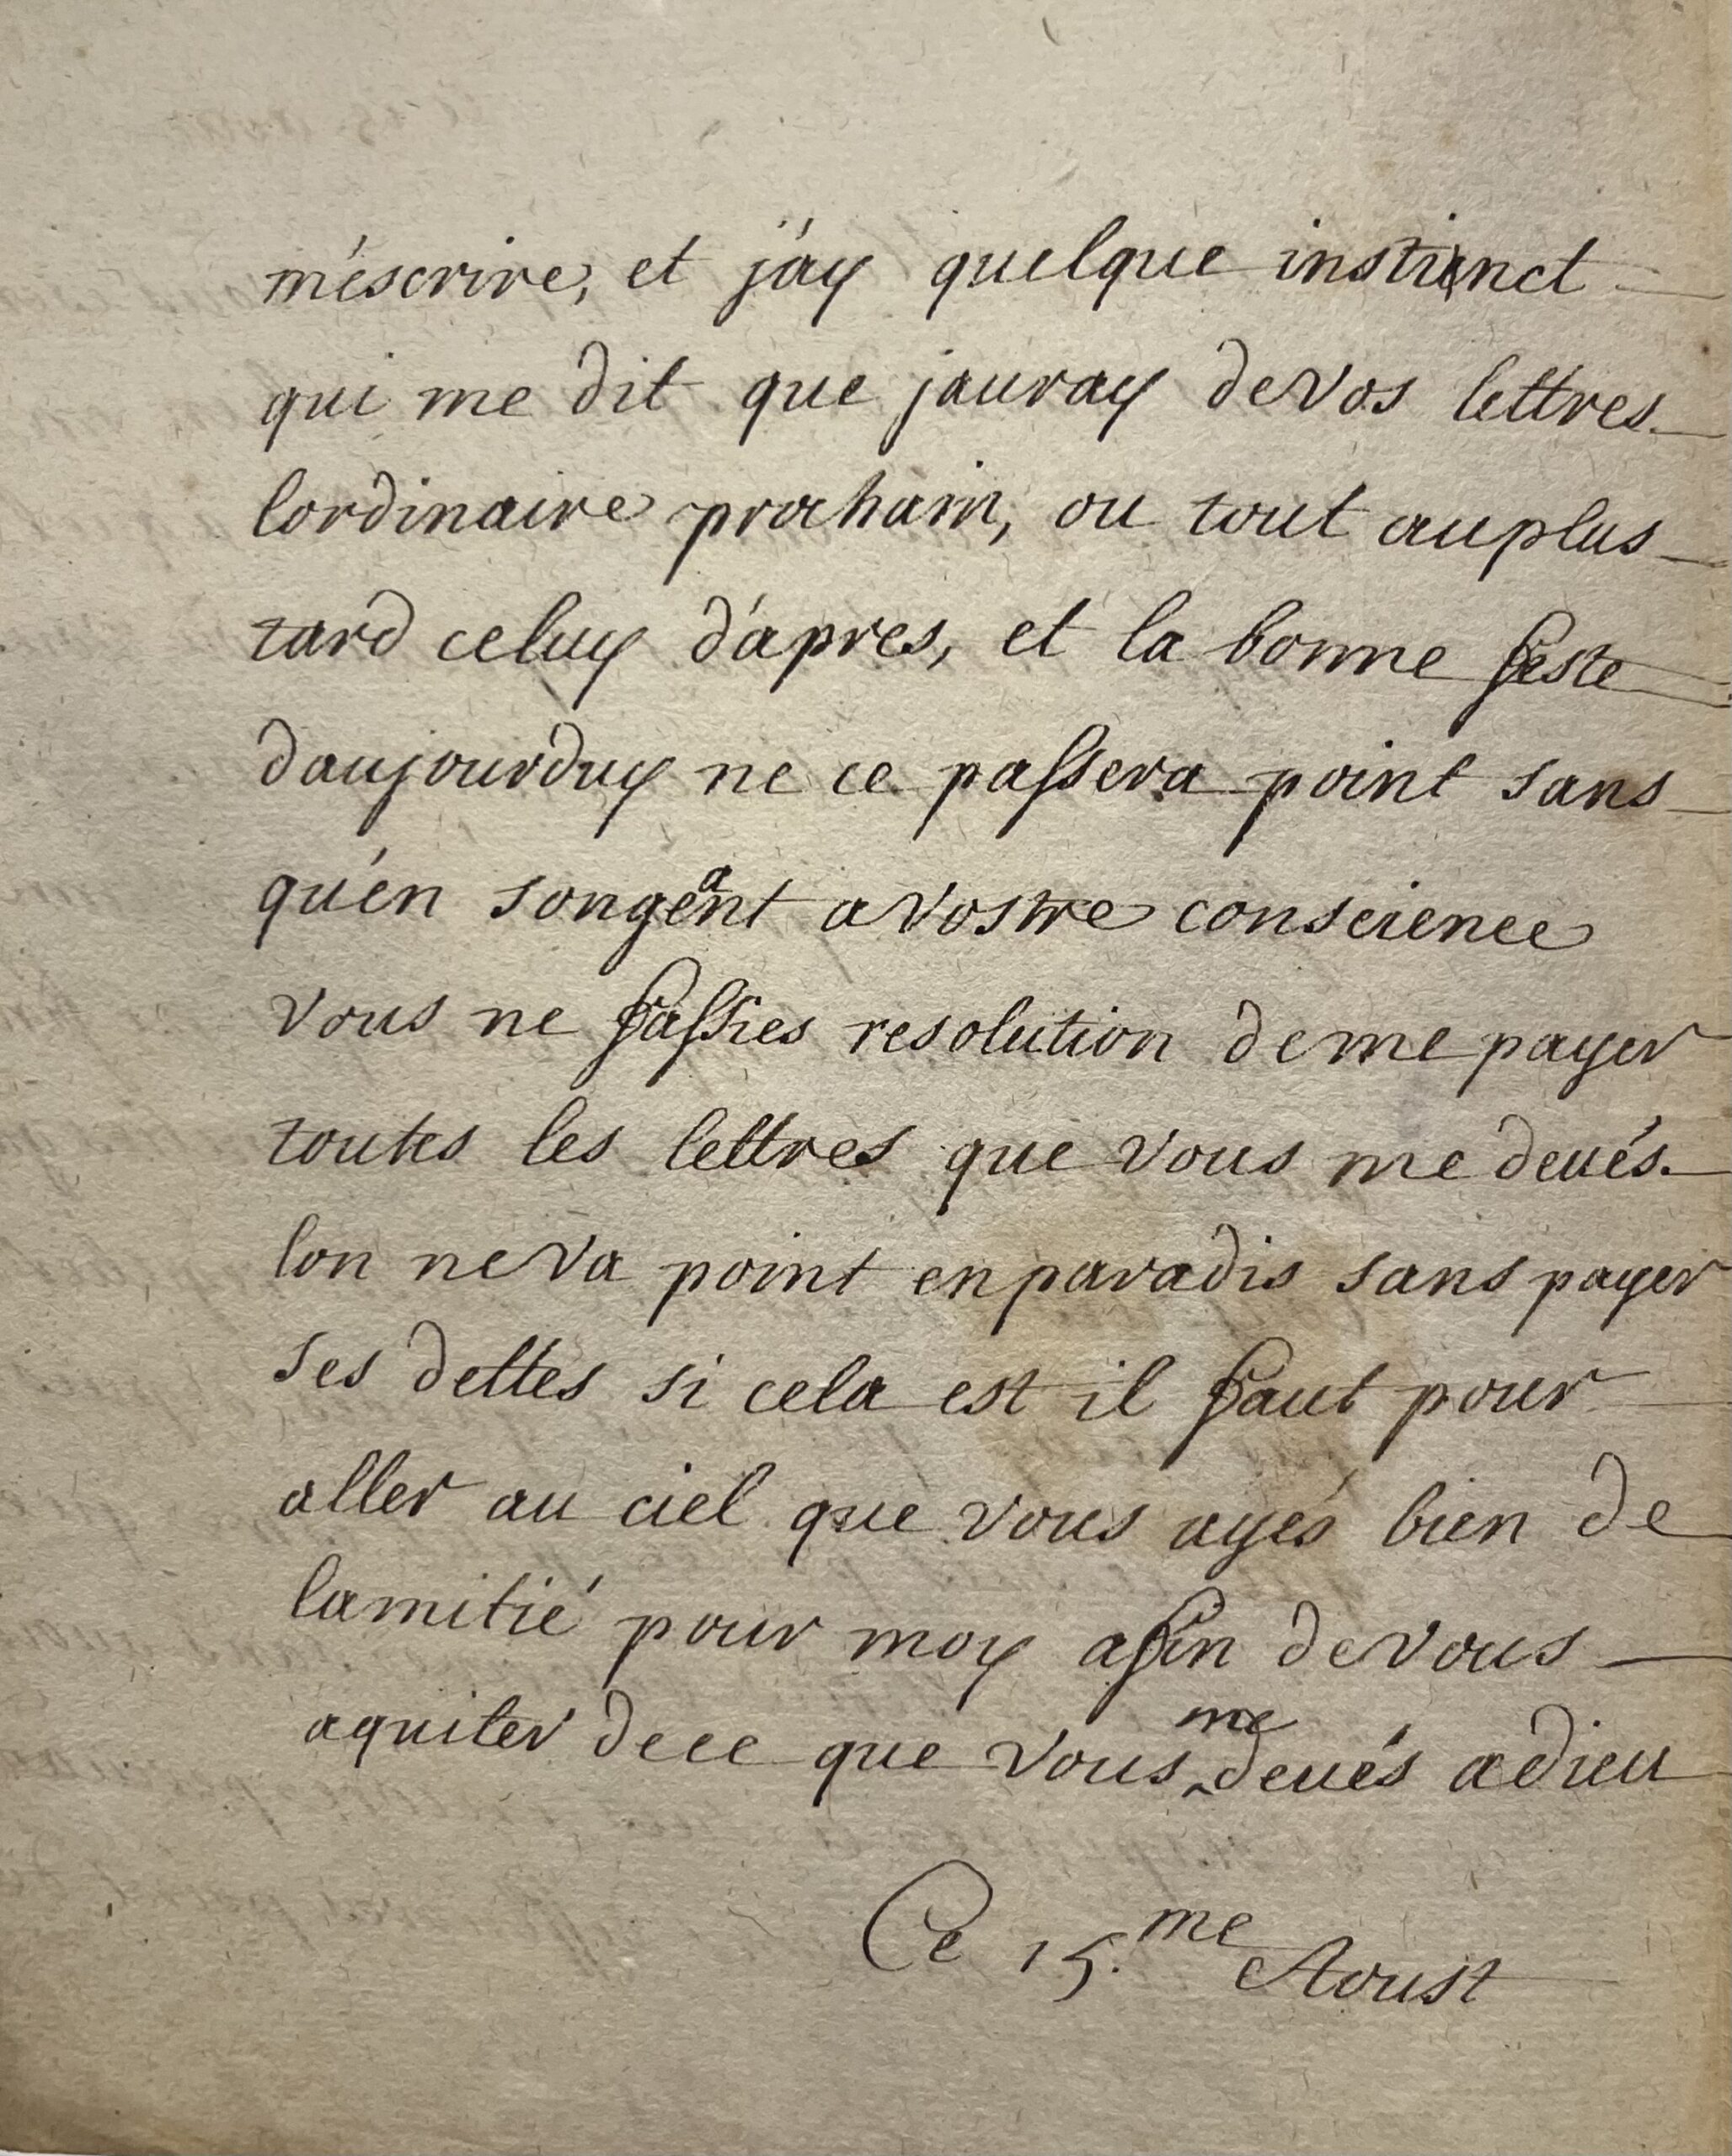 m'éscrire, et j'ay quelque instinct
qui me dit que jauray de vos lettres
lordinaire prochain, ou tout au plus
tard celuy d'apres, et la bonne feste
daujourduy ne ce passera point sans
qu'en songeant a vostre conscience
vous ne fassies resolution de me payer
toutes les lettres que vous me devés.
lon ne va point en paradis sans payer
ses dettes si cela est il faut pour
aller au ciel que vous ayés bien de
lamitié pour moy afin de vous
aquiter de ce que vous me devés adieu
Ce 15.me Aoust